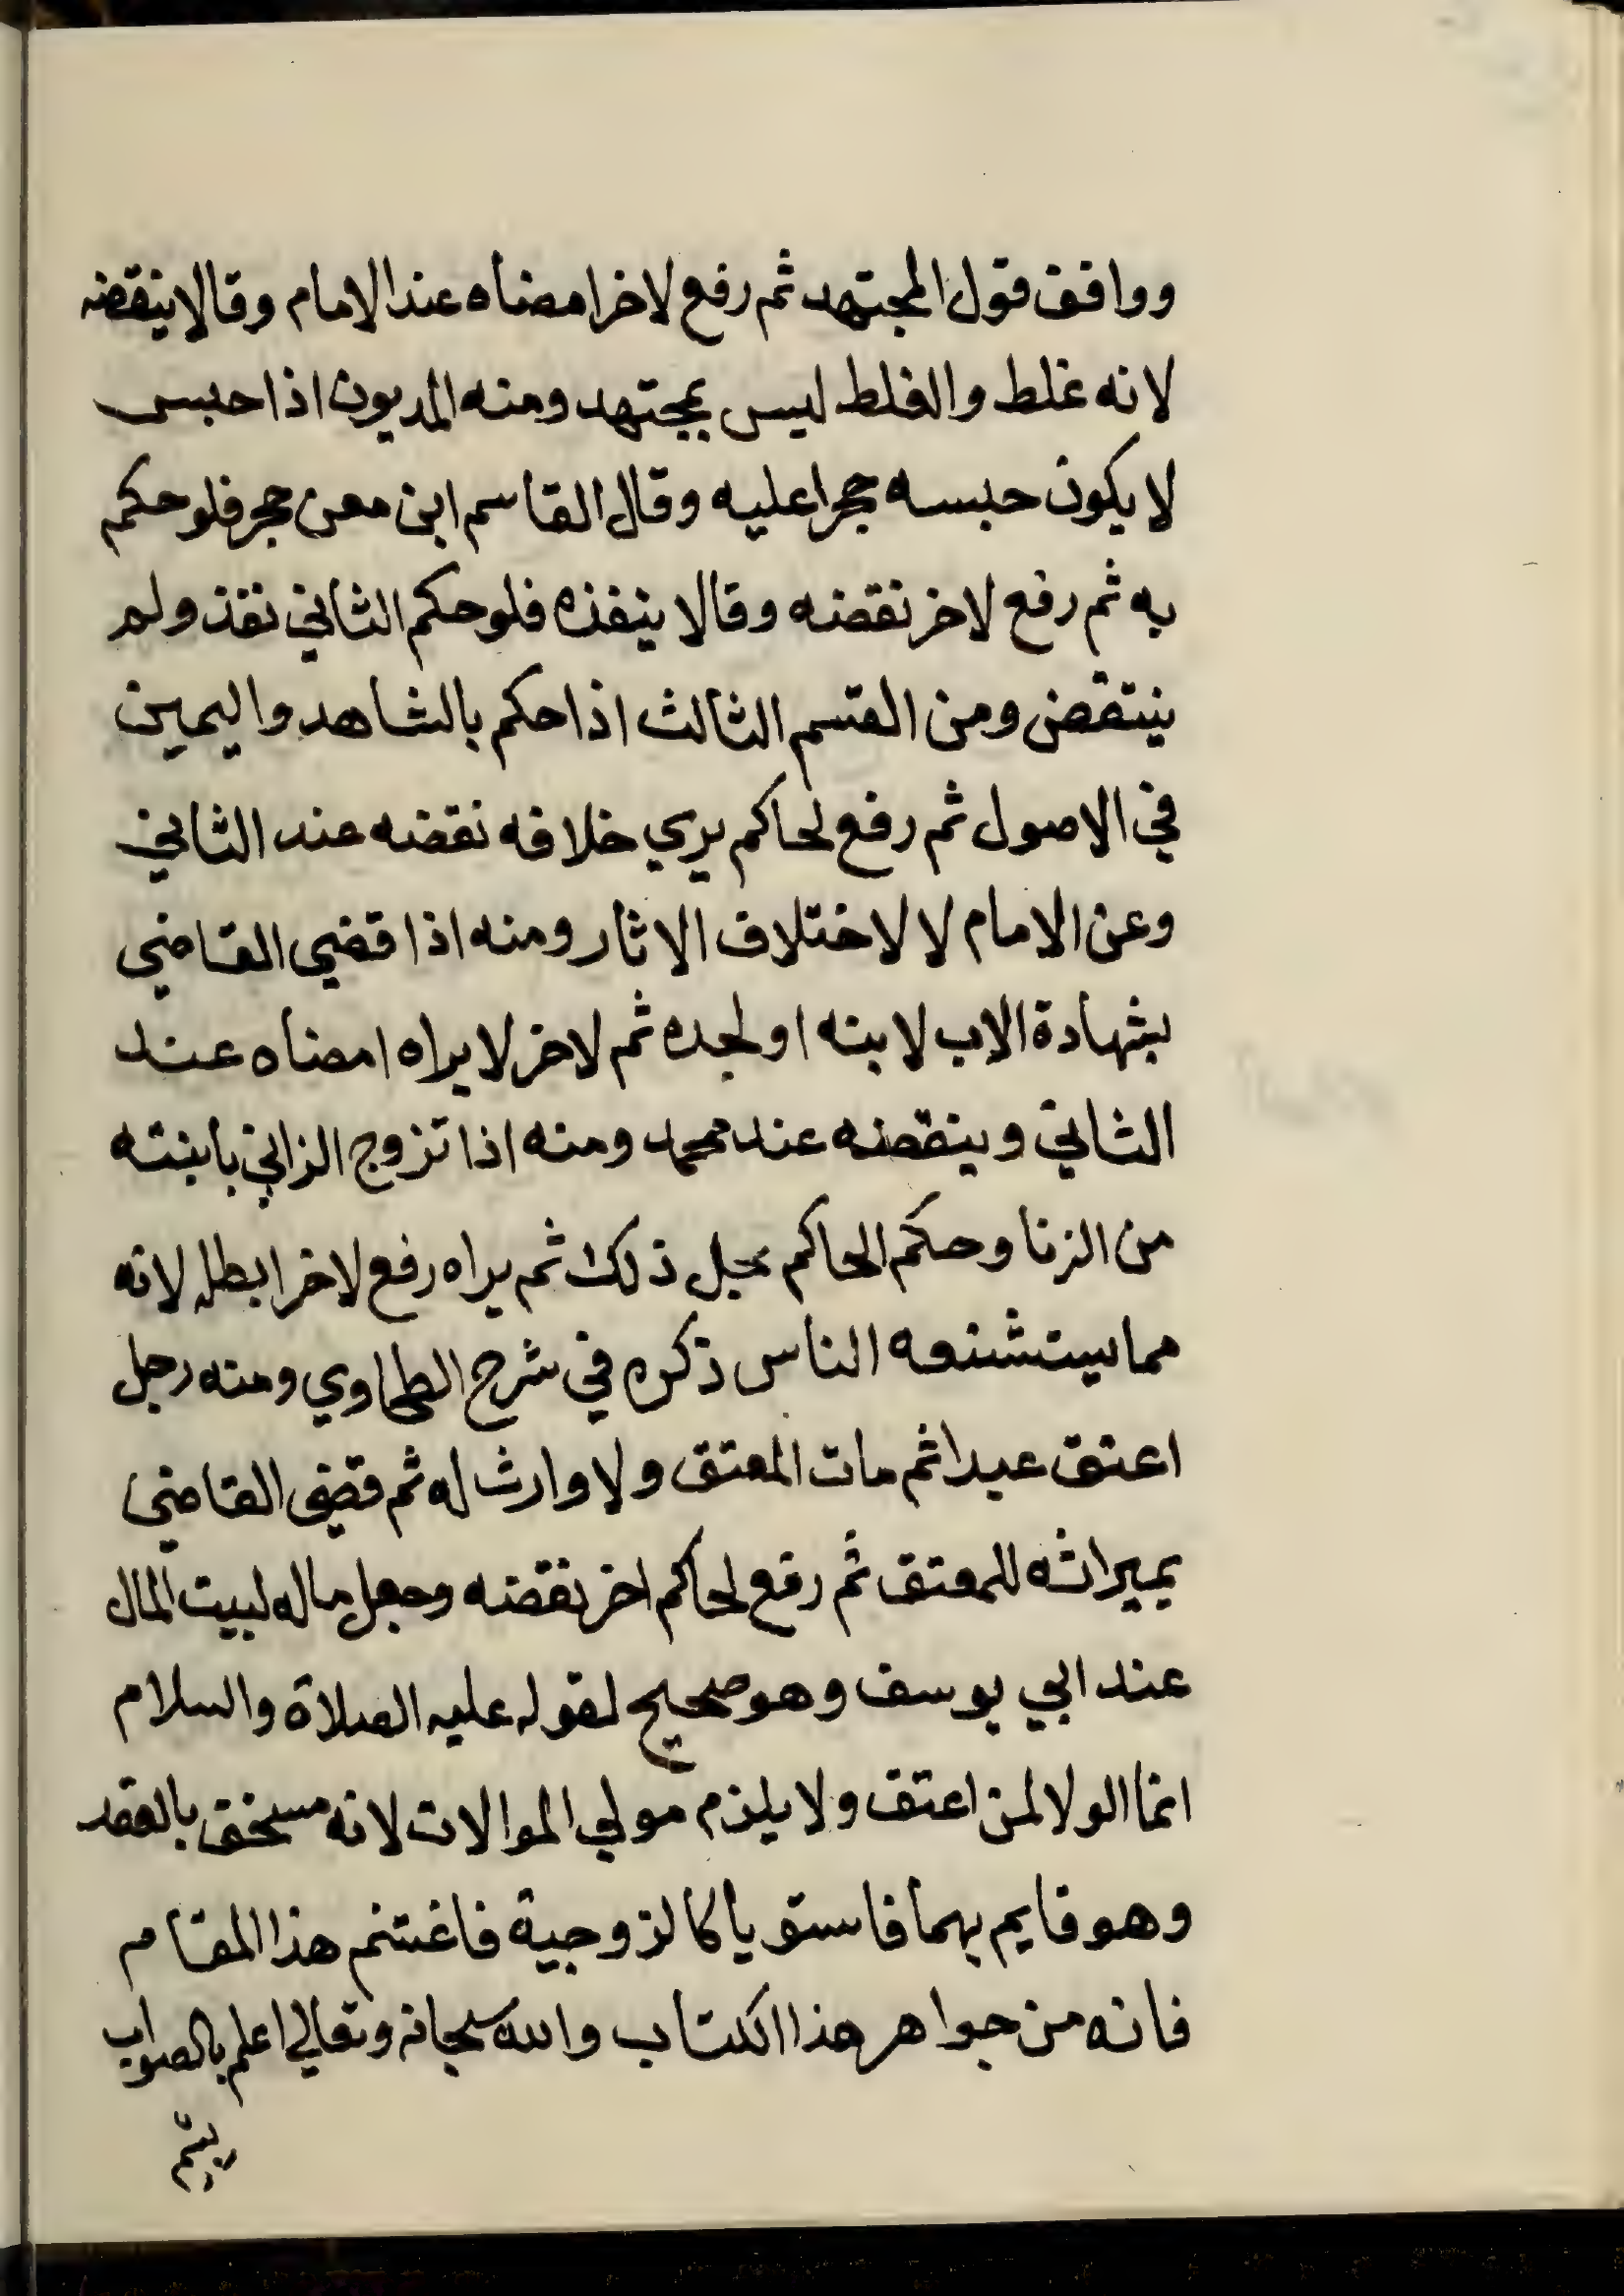 ووافق قول المجتهد ثم رفع لاخر امضاه عند الامام وقالا ينقضه
لانه غلط والغلط ليس بمجتهد ومنه المديون اذا حبس
لا يكون حبسه حجرا عليه وقال القاسم ابن معن حجر فلو حكم
به ثم رفع لاخر نقضه وقالا ينفذه فلو حكم الثاني نفذ ولم
ينتقض ومن القسم الثالث اذا حكم بالشاهد واليمين
في الاصول ثم رفع لحاكم يري خلافه نقضه عند الثاني
وعن الامام لا لاختلاف الاثار ومنه اذا قضي القاضي
بشهادة الاب لابنه او لجده ثم لاخر لا يراه امضاه عند
الثاني وينقضه عند محمد ومنه اذا تزوج الزاني بابنته
من الزنا وحكم الحاكم بحل ذلك ثم يراه رفع لاخر ابطله لانه
مما يستشنعه الناس ذكره في شرح الطحاوي ومنه رجل
اعتق عبدا ثم مات المعتق ولا وارث له ثم قضي القاضي
بميراثه للمعتق ثم رفع لحاكم اخر نقضه وجعل ماله لبيت المال
عند ابي يوسف وهو صحيح لقوله عليه الصلاة والسلام
انما الولا لمن اعتق ولا يلزم مولي الموالات لانه مستحق بالعقد
وهو قايم بهما فاستويا كالزوجية فاغتنم هذا المقام
فانه من جواهر هذا الكتاب والله سبحانه وتعالي اعلم بالصواب